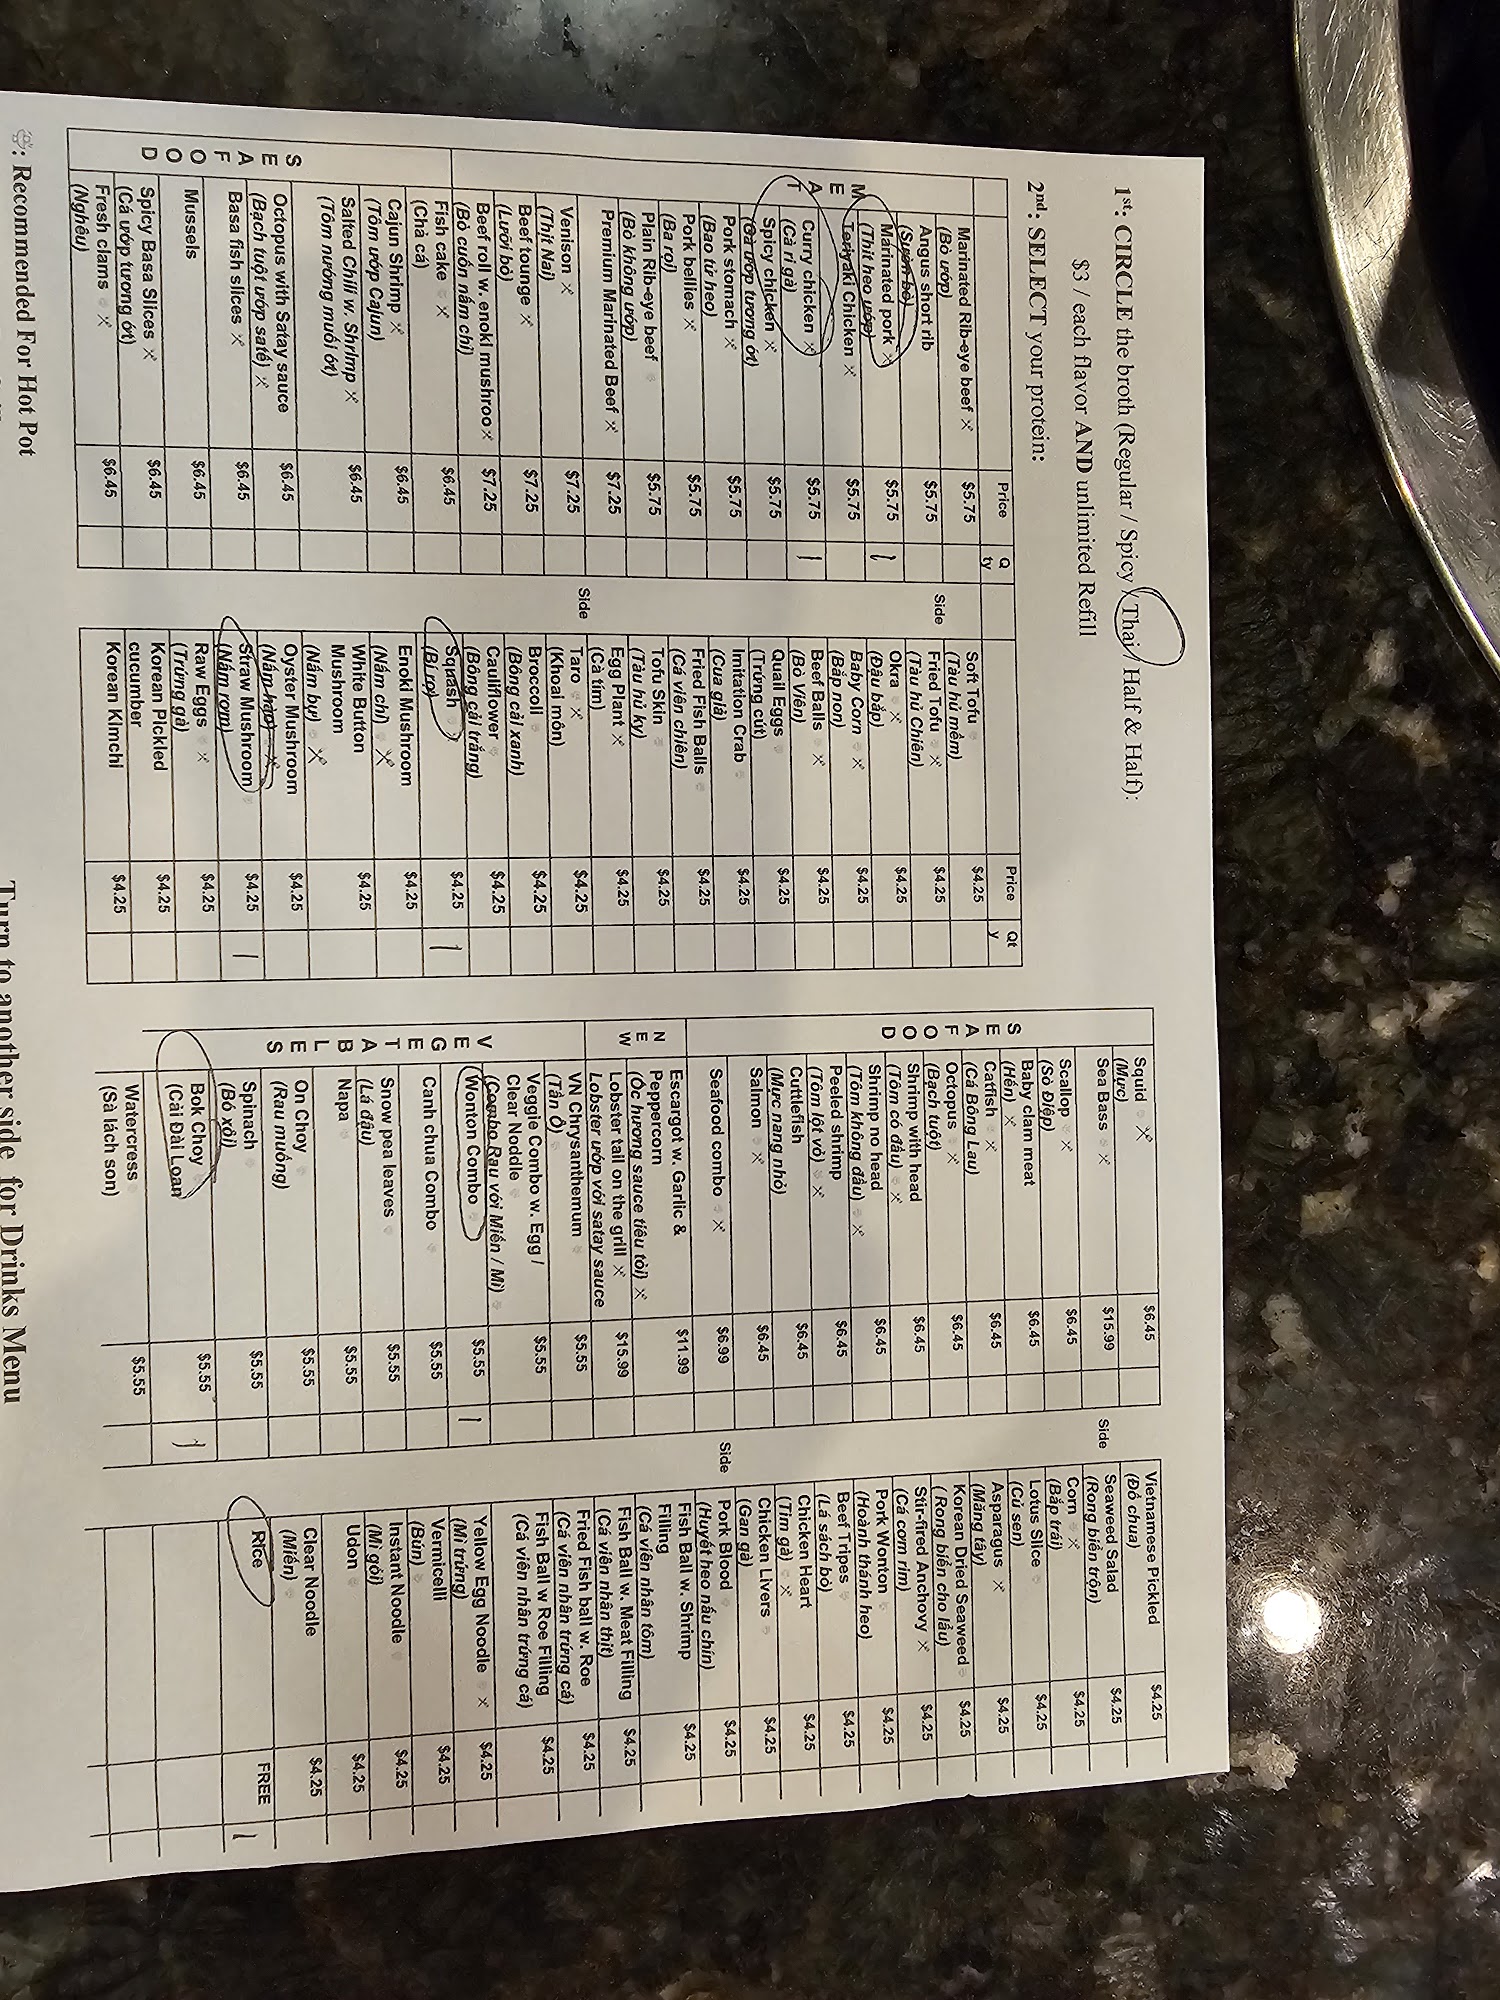 1st: CIRCLE the broth (Regular / Spicy / Thai / Half & Half):
$3 / each flavor AND unlimited Refill
2nd: SELECT your protein:
Price Q ty
MEAT
Marinated Rib-eye beef $5.75
(Bò ướp)
Angus short rib $5.75
(Sườn bò)
Marinated pork $5.75 1
(Thịt heo ướp)
Teriyaki Chicken $5.75
Curry chicken $5.75 1
(Cà ri gà)
Spicy chicken $5.75
(Gà ướp tương ớt)
Pork stomach $5.75
(Bao tử heo)
Pork bellies $5.75
(Ba rọi)
Plain Rib-eye beef $5.75
(Bò không ướp)
Premium Marinated Beef $7.25
Venison $7.25
(Thịt Nai)
Beef tounge $7.25
(Lưỡi bò)
Beef roll w. enoki mushroo $7.25
(Bò cuốn nấm chỉ)
SEAFOOD
Fish cake $6.45
(Chả cá)
Cajun Shrimp $6.45
(Tôm ướp Cajun)
Salted Chili w. Shrimp $6.45
(Tôm nướng muối ớt)
Octopus with Satay sauce $6.45
(Bạch tuột ướp saté)
Basa fish slices $6.45
Mussels $6.45
Spicy Basa Slices $6.45
(Cá ướp tương ớt)
Fresh clams $6.45
(Nghêu)
Side
Side
Price Qt y
Soft Tofu $4.25
(Tàu hủ mềm)
Fried Tofu $4.25
(Tàu hủ Chiên)
Okra $4.25
(Đậu bắp)
Baby Corn $4.25
(Bắp non)
Beef Balls $4.25
(Bò Viên)
Quail Eggs $4.25
(Trứng cút)
Imitation Crab $4.25
(Cua giả)
Fried Fish Balls $4.25
(Cá viên chiên)
Tofu Skin $4.25
(Tàu hủ ky)
Egg Plant $4.25
(Cà tím)
Taro $4.25
(Khoai môn)
Broccoli $4.25
(Bông cải xanh)
Cauliflower $4.25
(Bông cải trắng)
Squash $4.25 1
(Bí rợ)
Enoki Mushroom $4.25
(Nấm chỉ)
White Button $4.25
Mushroom
(Nấm bụi)
Oyster Mushroom $4.25
Straw Mushroom $4.25 1
(Nấm rơm)
Raw Eggs $4.25
(Trứng gà)
Korean Pickled $4.25
cucumber
Korean Kimchi $4.25
SEAFOOD
Squid $6.45
(Mực)
Sea Bass $15.99
Scallop $6.45
(Sò Điệp)
Baby clam meat $6.45
(Hến)
Catfish $6.45
(Cá Bông Lau)
Octopus $6.45
(Bạch tuột)
Shrimp with head $6.45
(Tôm có đầu)
Shrimp no head $6.45
(Tôm không đầu)
Peeled shrimp $6.45
(Tôm lột vỏ)
Cuttlefish $6.45
(Mực nang nhỏ)
Salmon $6.45
Seafood combo $6.99
NEW
Escargot w. Garlic & $11.99
Peppercorn
(Ốc hương sauce tiêu tỏi)
Lobster tail on the grill $15.99
Lobster ướp với satay sauce
VEGETABLES
VN Chrysanthemum $5.55
(Tần Ô)
Veggie Combo w. Egg / $5.55
Clear Noddle
(Combo Rau với Miến / Mì)
Wonton Combo $5.55 1
Canh chua Combo $5.55
Snow pea leaves $5.55
(Lá đậu)
Napa $5.55
On Choy $5.55
(Rau muống)
Spinach $5.55
(Bó xôi)
Bok Choy $5.55 1
(Cải Đài Loan)
Watercress $5.55
(Sà lách son)
Side
Side
Vietnamese Pickled $4.25
(Đồ chua)
Seaweed Salad $4.25
(Rong biển trộn)
Corn $4.25
(Bắp trái)
Lotus Slice $4.25
(Củ sen)
Asparagus $4.25
(Măng tây)
Korean Dried Seaweed $4.25
(Rong biển cho lẩu)
Stir-fired Anchovy $4.25
(Cá cơm rim)
Pork Wonton $4.25
(Hoành thánh heo)
Beef Tripes $4.25
(Lá sách bò)
Chicken Heart $4.25
(Tim gà)
Chicken Livers $4.25
(Gan gà)
Pork Blood $4.25
(Huyết heo nấu chín)
Fish Ball w. Shrimp $4.25
Filling
(Cá viên nhân tôm)
Fish Ball w. Meat Filling $4.25
(Cá viên nhân thịt)
Fried Fish ball w. Roe $4.25
(Cá viên nhân trứng cá)
Fish Ball w Roe Filling $4.25
(Cá viên nhân trứng cá)
Yellow Egg Noodle $4.25
(Mì trứng)
Vermicelli $4.25
(Bún)
Instant Noodle $4.25
(Mì gói)
Udon $4.25
Clear Noodle $4.25
(Miến)
Rice FREE 1
: Recommended For Hot Pot
Turn to another side for Drinks Menu